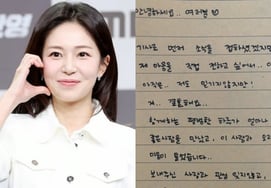 안녕하세요.. 여러분
기사로 먼저 소식을 접하셨겠지만
제 마음을 직접 전하고 싶어서..
아직은.. 저도 믿기지않지만!
저.. 결혼해요..
함께하는 평범한 하루가 얼마나
좋은사람을 만났고, 이 사람과
들었습니다..
보내주신 사랑과 관심 잊지않고